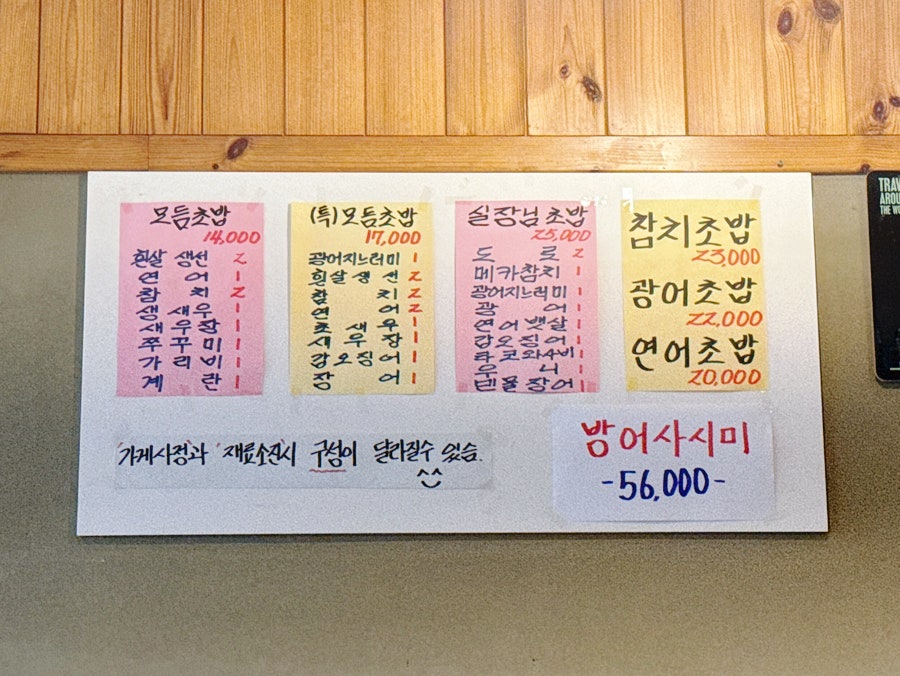 모듬초밥
14,000
흰살 생선 2
연어 1
참치 2
생새우 1
새우장 1
쭈꾸미 1
가리비 1
계란 1
(특)모듬초밥
17,000
광어지느러미 1
흰살생선 2
참치 2
연어 2
초새우 1
새우장 1
갑오징어 1
장어 1
실장님초밥
25,000
도로 2
메카참치 1
광어지느러미 1
광어 1
연어뱃살 1
갑오징어 1
타코와사비 1
우니 1
템풀장어 1
참치초밥
23,000
광어초밥
22,000
연어초밥
20,000
'가게사정'과 '재료소진'시 구성이 달라질수 있슴.
방어사시미
-56,000-
TRAV
AROU
THE WO